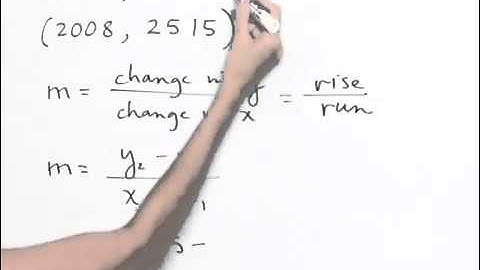 (2008, 2515)
m = change in y / change in x = rise / run
m = y₂ - / x ₁
5 -